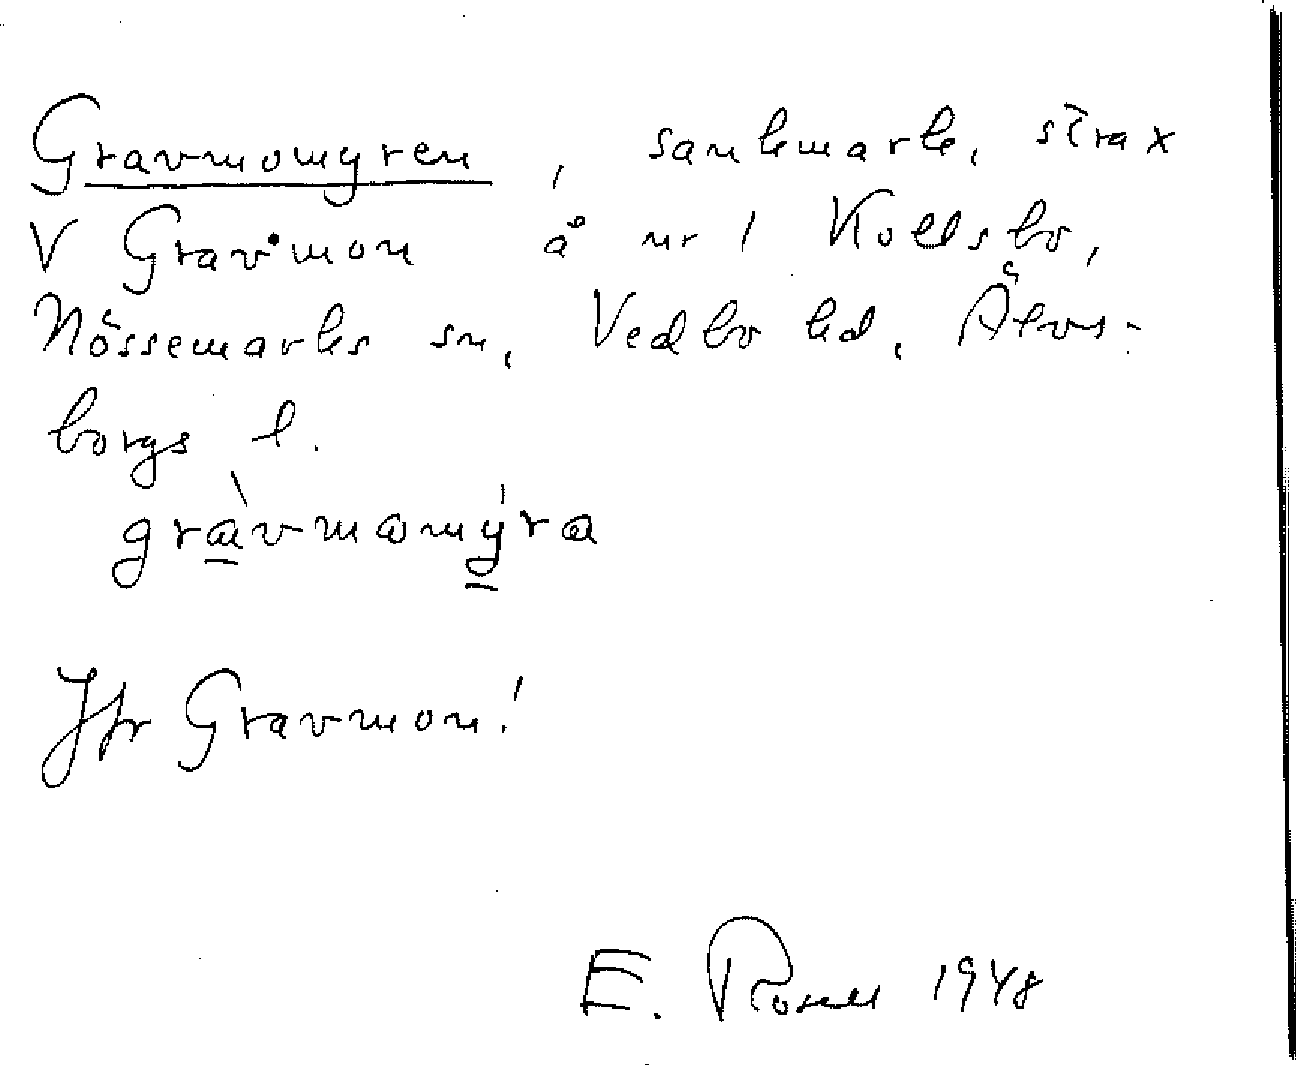 Gravmomyren, sankmark, strax
V Gravmon å nr 1 Kollsbo,
Nössemarks sn, Vedbo hd, Älvs-
borgs l.
gràvmomýra
Jfr Gravmon!
E. Rosell 1948